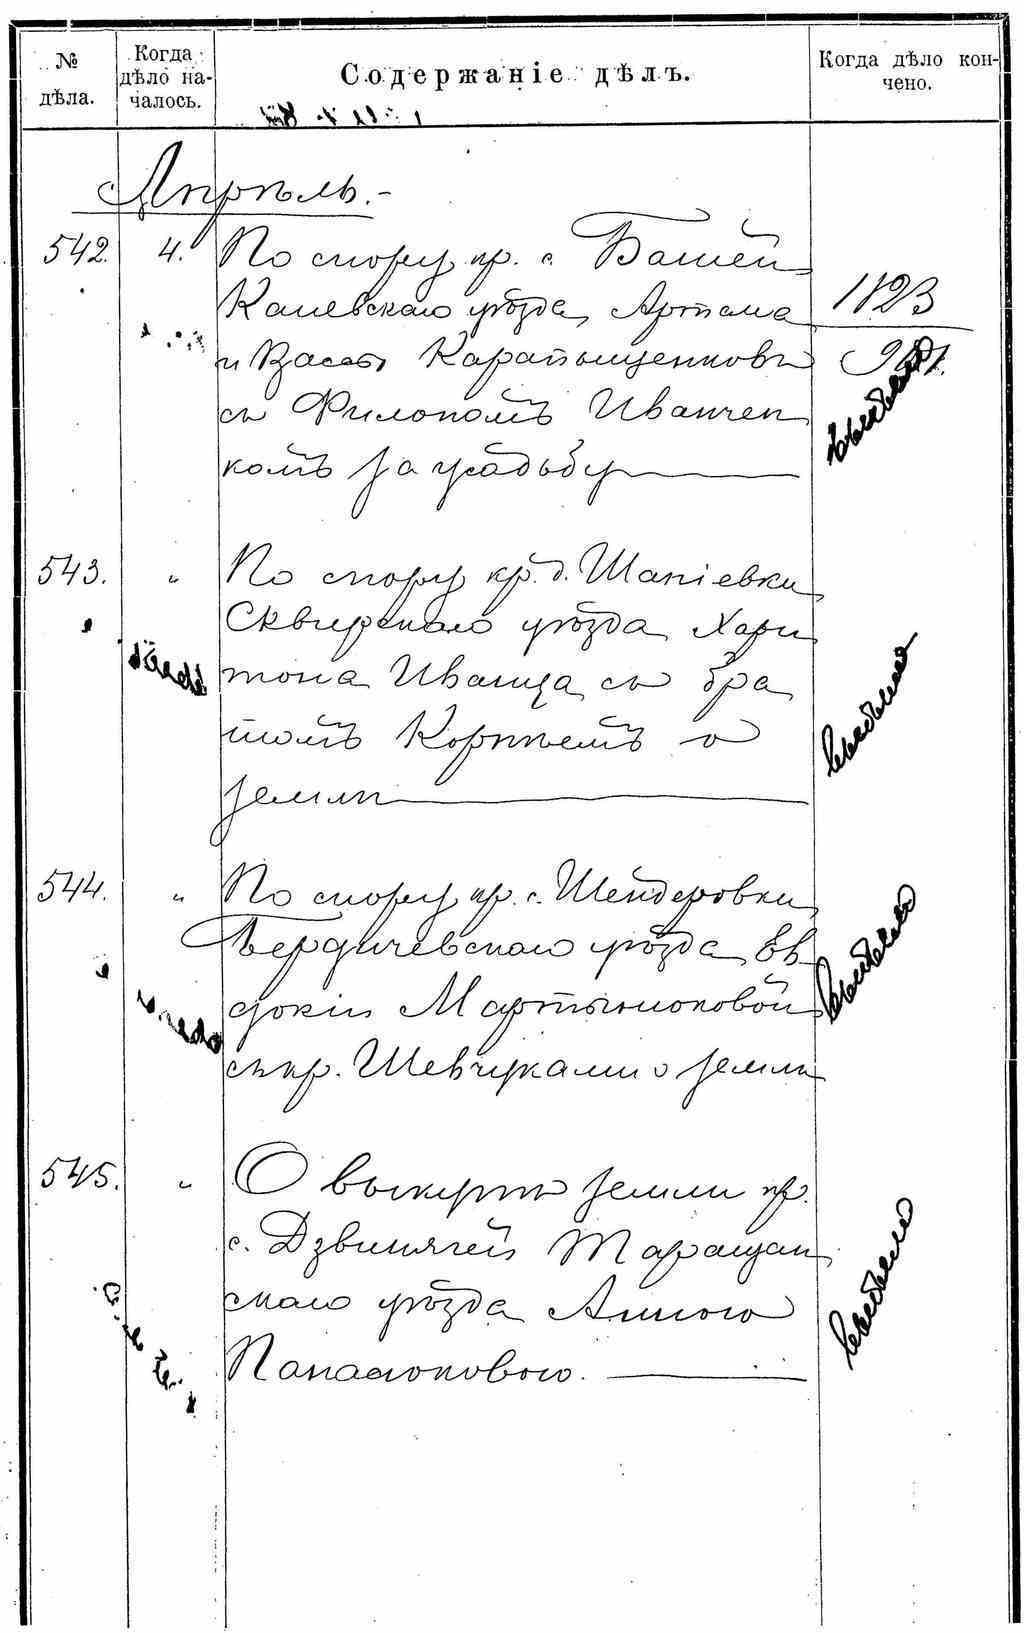 № дѣла.
Когда дѣло на-
чалось.
Содержаніе дѣлъ.
Когда дѣло кон-
чено.
Апрѣль.-
542. 4. По спору кр. с. Башей
Каневскаго уѣзда, Артема
и Васс. Карапыщенковъ
съ Филономъ Иванчен
комъ за усадьбу
1823
543. " По спору кр. д. Шапіевки
Сквирскаго уѣзда Хари
тона Иваница съ бра
томъ Корнѣемъ о
землѣ
544. " По спору кр. с. Шендеровки,
Бердичевскаго уѣзда Ев
докіи Мартынюковой
съ кр. Шевчуками о землѣ
545. " О выкупѣ земли кр.
с. Дзвинячей Таращан
скаго уѣзда Анною
Панасюковою.